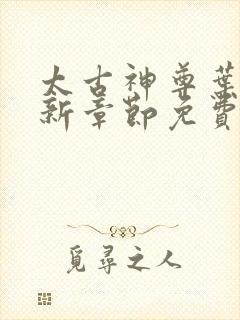 太古神尊葉
新章節免費
覓尋之人